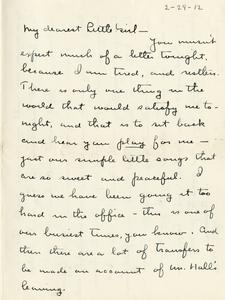 2-29-12
My dearest Little Girl—
You mustn't
expect much of a letter tonight,
because I am tired, and restless.
There is only one thing in the
world that would satisfy me to-
night, and that is to sit back
and hear you play for me —
just our simple little songs that
are so sweet and peaceful. I
guess we have been going it too
hard in the office - this is one of
our busiest times, you know. And
then there are a lot of transfers to
be made on account of Mr. Hall's
leaving.